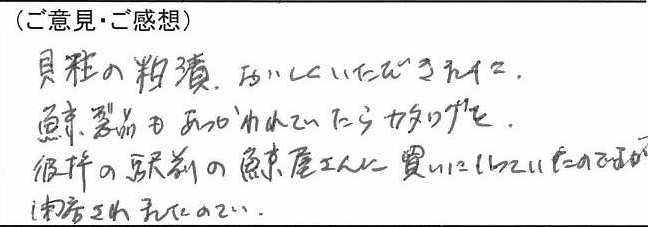 (ご意見・ご感想)
貝柱の粕漬、おいしくいただきました。
鯨製品もあつかわれていたらカタログを。
彼杵の駅前の鯨屋さんに買いに行っていたのですが
閉店されましたので。